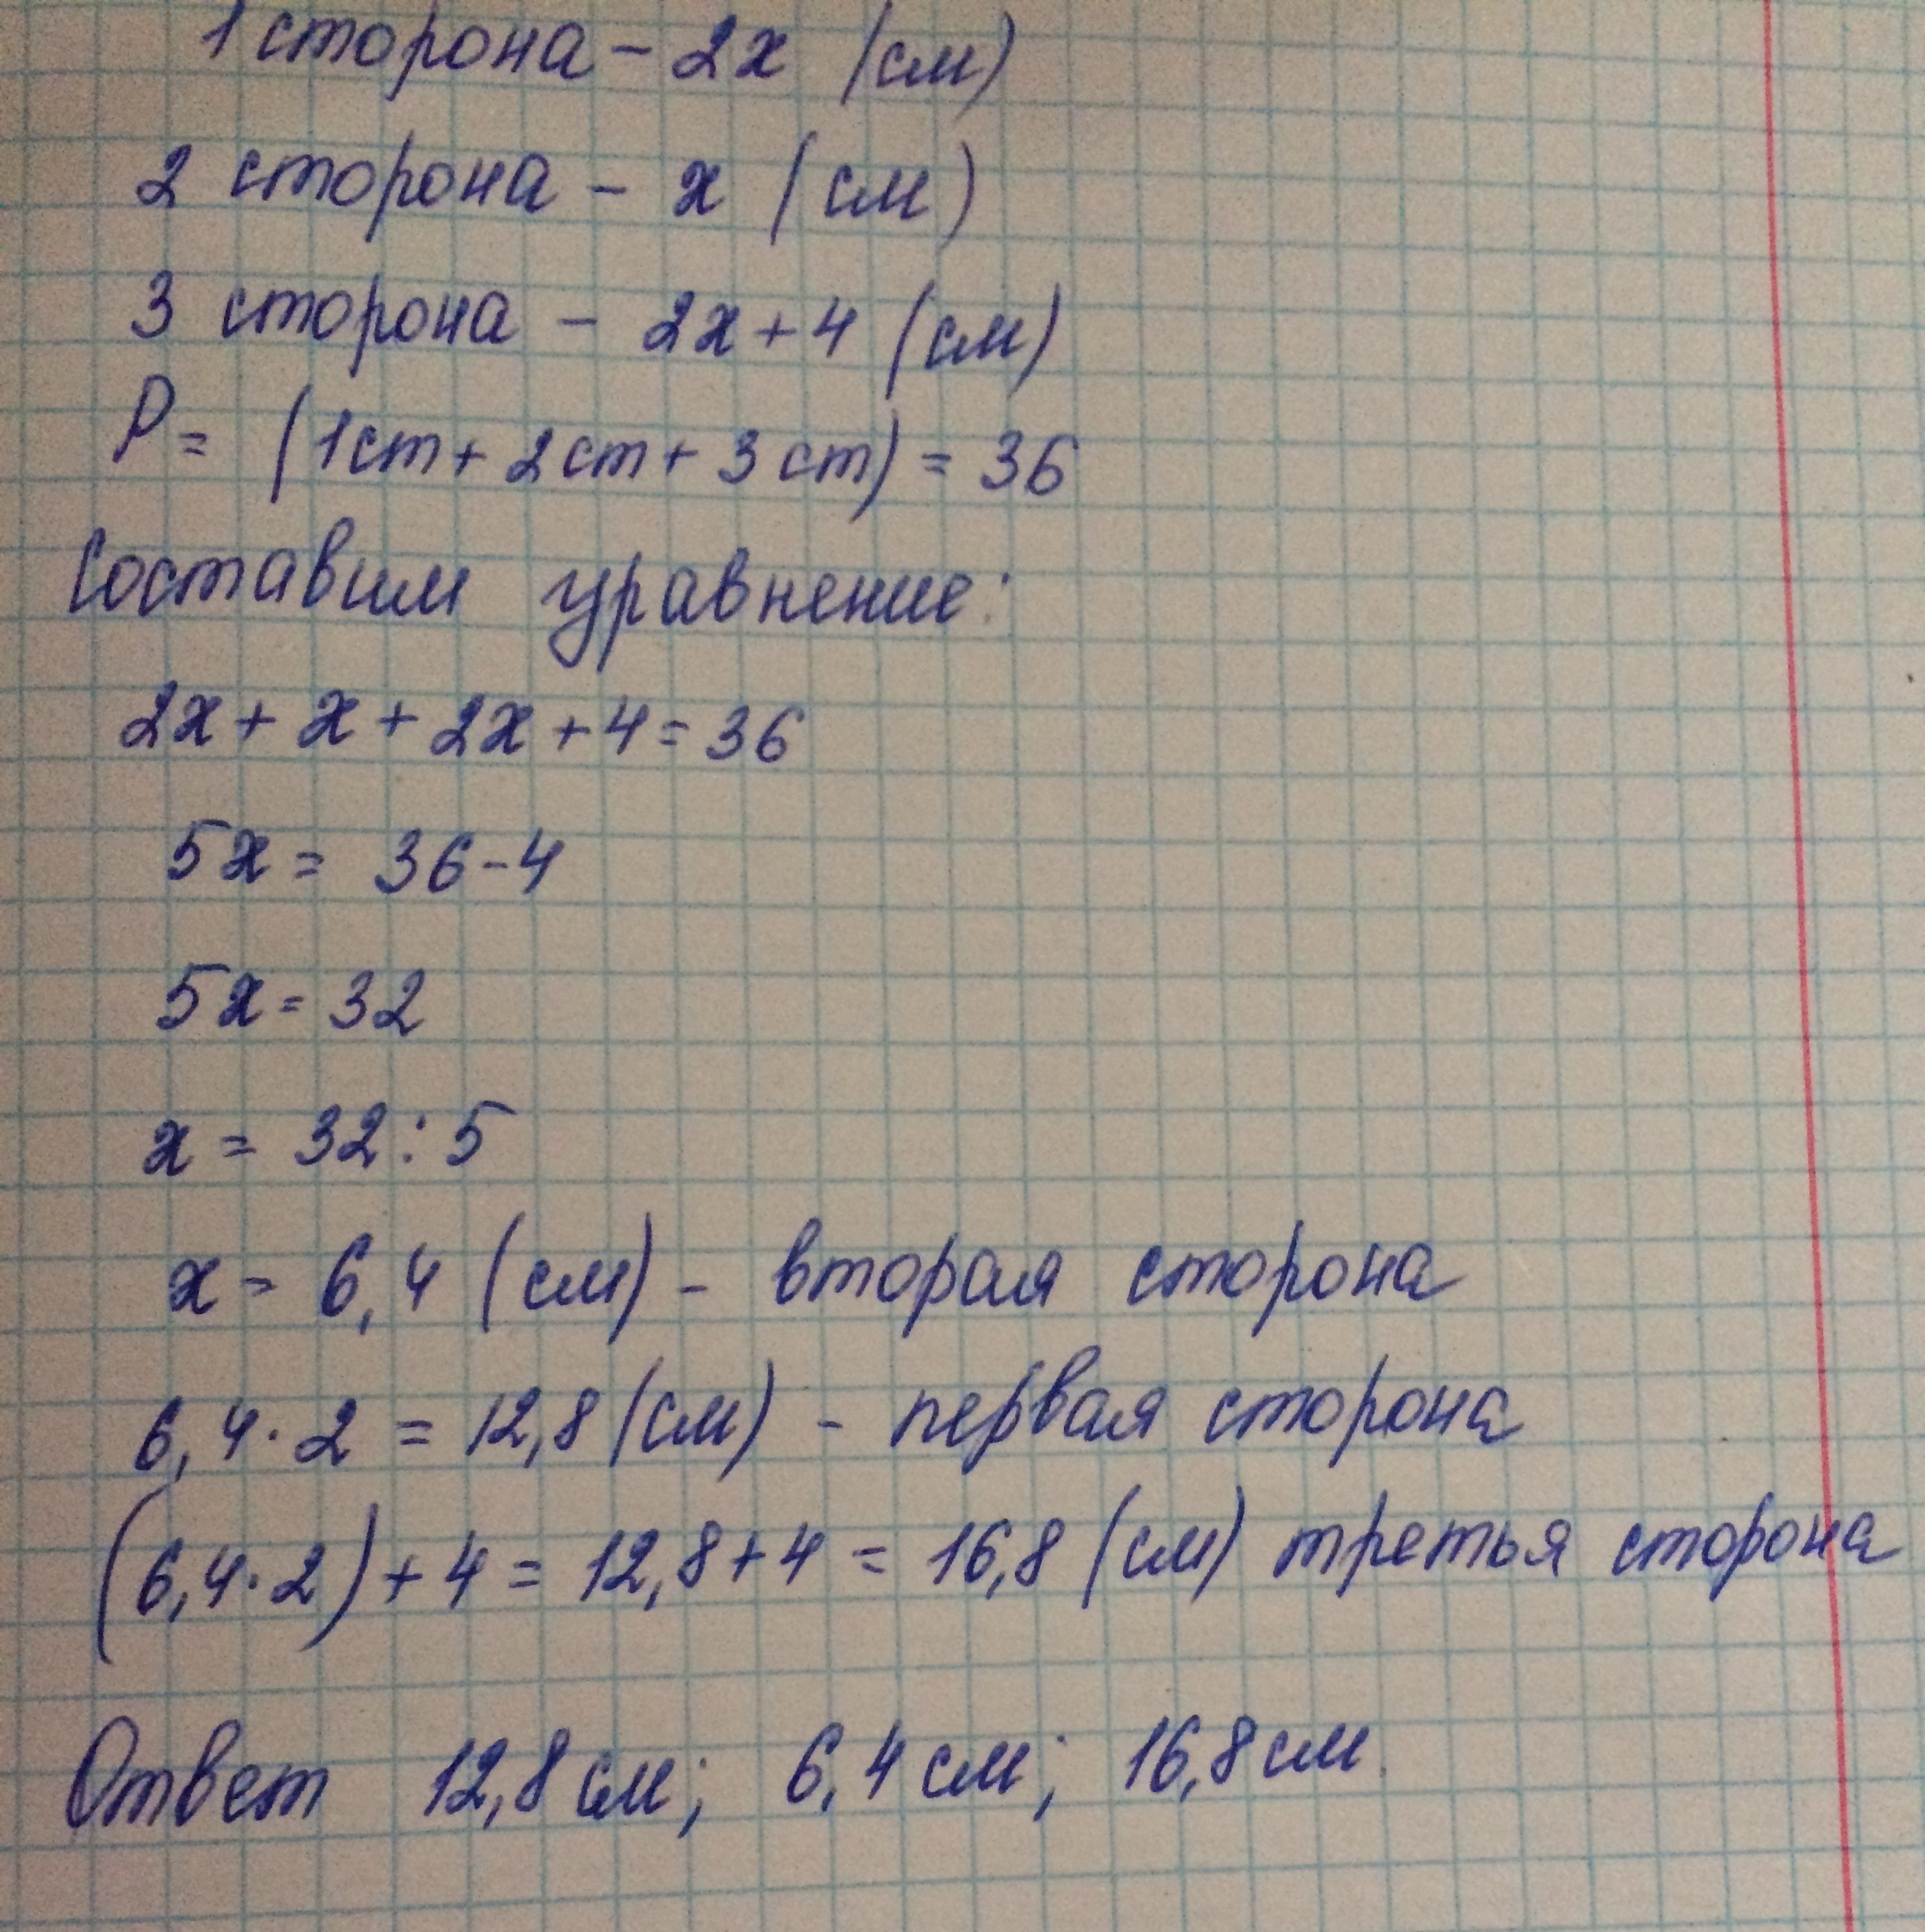 1 сторона – 2х (см)
2 сторона – х (см)
3 сторона – 2х+4 (см)
Р = (1ст+ 2ст+ 3ст) = 36
Составим уравнение:
2х + х + 2х + 4 = 36
5х = 36-4
5х = 32
х = 32 : 5
х = 6,4 (см) - вторая сторона
6,4 · 2 = 12,8 (см) - первая сторона
(6,4·2)+4 = 12,8+4 = 16,8 (см) третья сторона
Ответ 12,8 см; 6,4 см; 16,8 см.